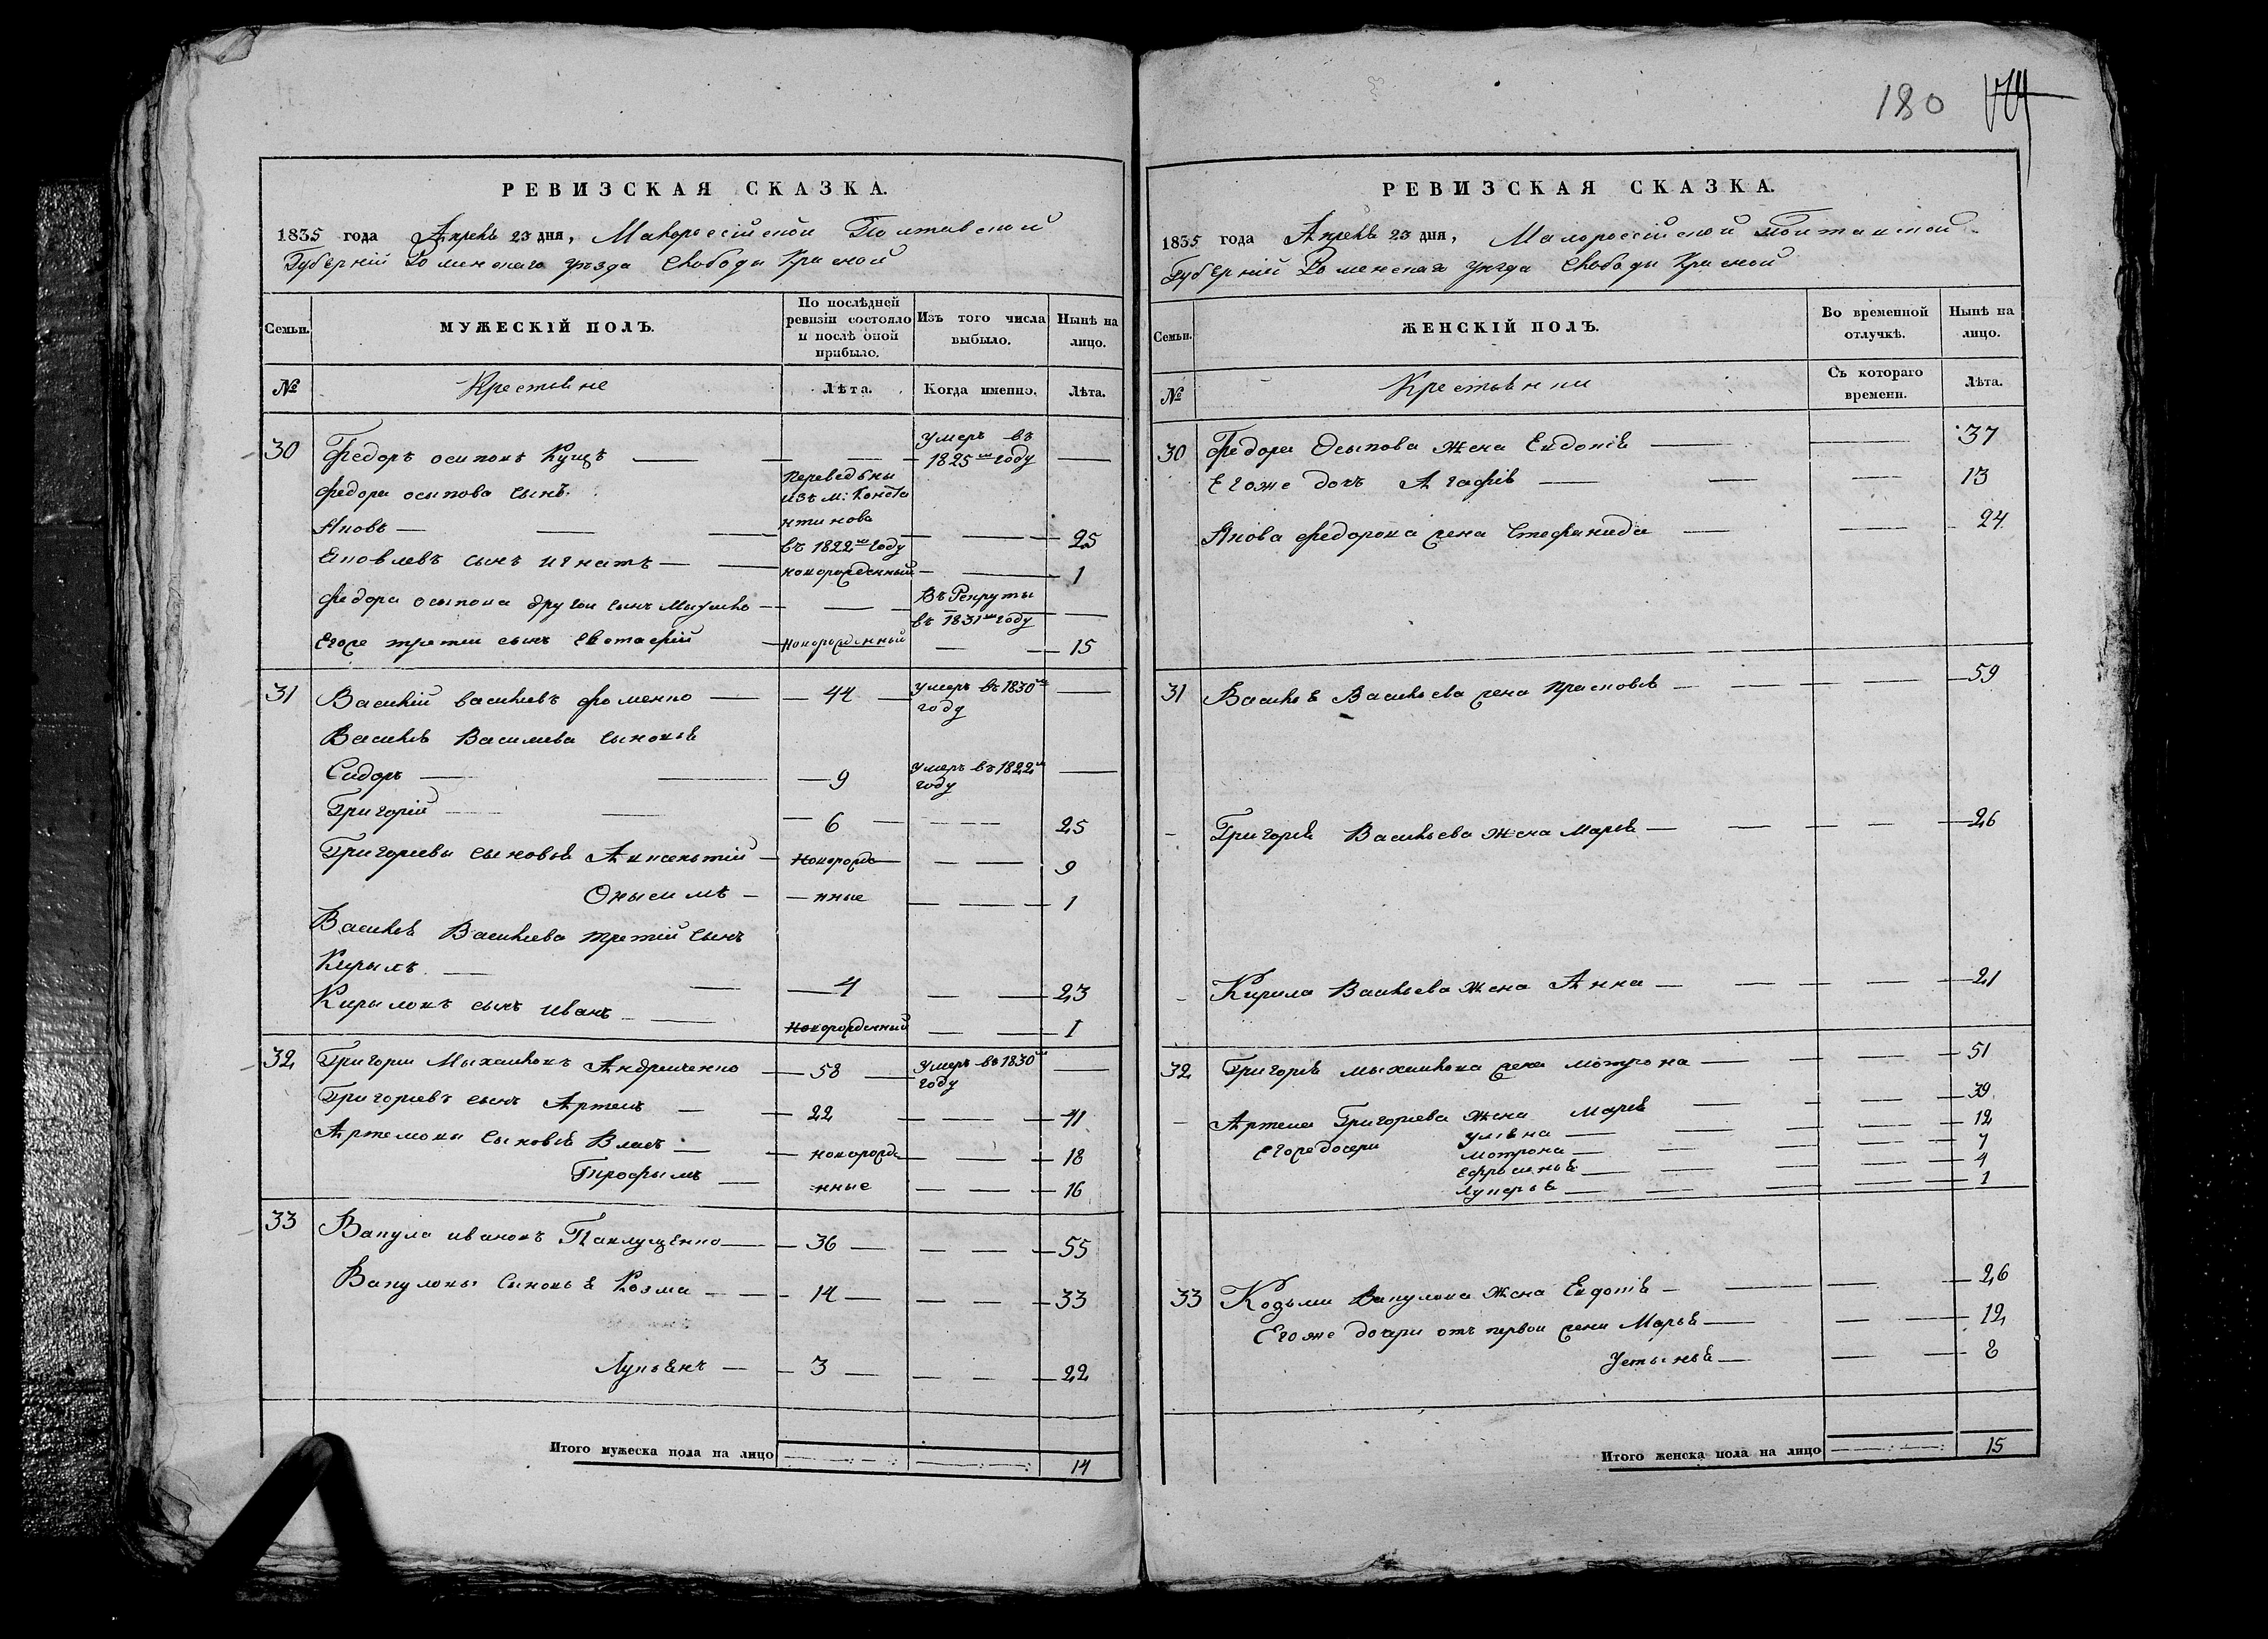 180
РЕВИЗСКАЯ СКАЗКА.
1835 года Апреля 23 дня, Малороссійской Полтавской
Губерніи Роменскаго уезда Слободы Красной
Семьи.
МУЖЕСКІЙ ПОЛЪ.
По послѣдней ревизіи состояло и послѣ оной прибыло.
Изъ того числа выбыло.
Нынѣ на лицо.
№
Крестьяне
Лѣта.
Когда именно.
Лѣта.
30 Федоръ осиповъ Кущъ — — умеръ въ 1825м году —
Федора осипова сынъ
Яковъ — переведены изъ м: Константинова въ 1822м году — 25
Яковлевъ сынъ игнатъ — новорожденный — 1
Федора осипова другой сынъ — Въ Рекруты въ 1831м году —
Егоже третии сынъ Евстафій — новорожденный — 15
31 Василій васильевъ фоменко — 44 — умеръ въ 1830м году —
Василя Василиева сыновья
Сидоръ — 9 умеръ въ 1822м году —
Григорій — 6 — 25
Григориевы сыновья Аксентій — новорожде — 9
Онысимъ — нные — 1
Василя Василиева третій сынъ
Кирылъ — 4 — 23
Кирыловъ сынъ иванъ — новорожденный — 1
32 Григории Мыхаиловъ Андриенко — 58 — умеръ въ 1830м году —
Григориевъ сынъ Артемъ — 22 — 41
Артемовы сыновья Власъ — новорожде — 18
Трофымъ — нные — 16
33 Вакула ивановъ Паклущенко — 36 — 55
Вакуловы сыновья Козма — 14 — 33
Лукьянъ — 3 — 22
Итого мужеска пола на лицо 14
РЕВИЗСКАЯ СКАЗКА.
1835 года Апреля 23 дня, Малороссійской Полтавской
Губерніи Роменскаго уезда Слободы Красной
Семьи.
ЖЕНСКІЙ ПОЛЪ.
Во временной отлучкѣ.
Нынѣ на лицо.
№
Крестьянки
Съ котораго времени.
Лѣта.
30 Федора Осыпова жена Евдокія — 37
Егоже дочъ Агафія — 13
Якова федорова жена Стефанида — 24
31 Василя Васильева жена прасковья — 59
Григорія Васильева жена Марья — 26
Кирила Васильева жена Анна — 21
32 Григорія мыхаилова жена мотрона — 51
Артема Григориева жена Марья — 39
Егоже дочери улияна — 12
мотрона — 7
Ефросинья — 4
Лукерья — 1
33 Кодзьми Вакулова жена Евдокія — 26
Егоже дочери отъ первои жени Марья — 12
Устынья — 8
Итого женска пола на лицо 15